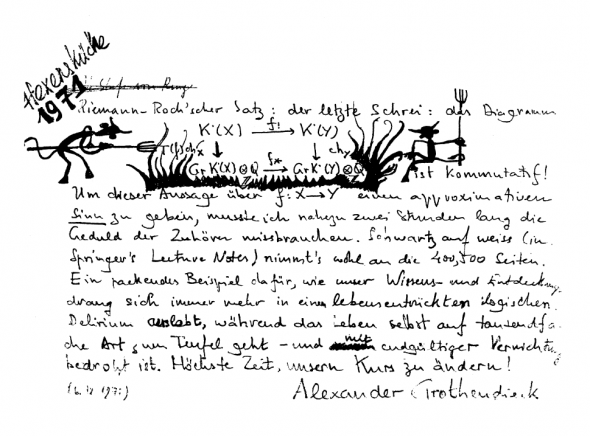 Hexenküche
1971
Riemann-Roch'scher Satz: der letzte Schrei: das Diagramm
K˙(X) f! → K˙(Y)
T(f)chx ↓ ↓ chy
Gr K˙(X)⊗Q f* → Gr K˙(Y)⊗Q
ist kommutatif!
Um dieser Aussage über f: X→Y einen approximativen
Sinn zu geben, musste ich nahezu zwei Stunden lang die
Geduld der Zuhörer missbrauchen. Schwartz auf weiss (in
Springer's Lecture Notes) nimmt's wohl an die 400, 500 Seiten.
Ein packendes Beispiel dafür, wie unser Wissens- und Entdeckungs
drang sich immer mehr in einem lebensentrückten logischen
Delirium auslebt, während das Leben selbst auf tausendfa-
che Art zum Teufel geht - und mit endgültiger Vernichtung
bedroht ist. Höchste Zeit, unsern Kurs zu ändern!
Alexander Grothendieck